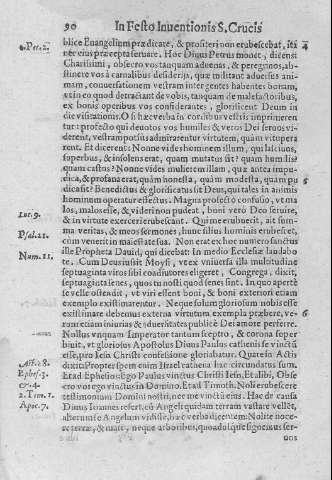 90 In Festo Inuentionis S. Crucis
blice Euangelium prædicare, & profiteri non erubescebat, ita
1. Pet. 2. nec eius præcepta seruare. Hoc Diuus Petrus monet, dicens: 4
Charissimi, obsecro vos tanquam aduenas, & peregrinos, abstinere
vos à carnalibus desiderijs, quæ militant aduersus animam,
conuersationem vestram inter gentes habentes bonam,
vt in eo quod detractant de vobis, tanquam de malefactoribus,
ex bonis operibus vos considerantes, glorificent Deum in
die visitationis. O si hæc verba in cordibus vestris imprimerentur:
profecto qui deuotos vos humiles & veros Dei seruos viderent,
vestram potius admirarentur virtutem, quam vituperarent.
Et dicerent: Nonne vides hominem illum, qui lasciuus,
superbus, & insolens erat, quam mutatus sit? quam humilis?
quam castus? Nonne vides mulierem illam, quæ antea impudica,
& profana erat, quam honesta, quam modesta, quam pudica
sit? Benedictus & glorificatus sit Deus, qui tales in animis 5
hominum operatur effectus. Magna profecto confusio, vt malos,
male esse, & videri non pudeat, boni vero Deo seruire,
Luc. 9. & in virtute exerceri erubescant. Qui me erubuerit, ait summa
veritas, & meos sermones, hunc filius hominis erubescet,
cum venerit in maiestate sua. Non erat ex hoc numero sanctus
Psal. 21. ille Propheta Dauid, qui dicebat: In medio Ecclesiæ laudabo
te. Cum Deus iussit Moysi, vt ex vniuersa illa multitudine
Num. 11. septuaginta viros sibi coadiutores eligeret, Congrega, dixit,
septuaginta senes, quos tu nosti quod senes sint. In quo aperte
velle ostendit, vt viri essent boni, & boni exteriori etiam
exemplo existimarentur. Neque solum gloriosum nobis esse
existimare debemus externa virtutum exempla præbere, verum 6
etiam iniurias & aduersitates publicè Dei amore perferre.
Nullus vnquam Imperator tantum sceptro, & corona superbiuit,
vt gloriosus Apostolus Diuus Paulus cathenis se vinctum
esse, pro Iesu Christi confessione gloriabatur. Quare in Actis
Act. 28. dixit: Propter spem enim Israel cathena hac circundatus sum.
Ephes. 3. Et ad Ephesios: Ego Paulus vinctus Christi Iesu, Et alibi, Obsecro
& 4. vos ego vinctus in Domino. Et ad Timoth. Noli erubescere
2. Tim. 1. testimonium Domini nostri, nec me vinctum eius. Hac de causa
Apoc. 7. Diuus Ioannes refert, cũ Angeli quidam terram vastare vellẽt,
alterum se Angelum vidisse, hæc verba dicentem: Nolite nocere
terræ, & mari, neque arboribus, quoadusque signemus seruos